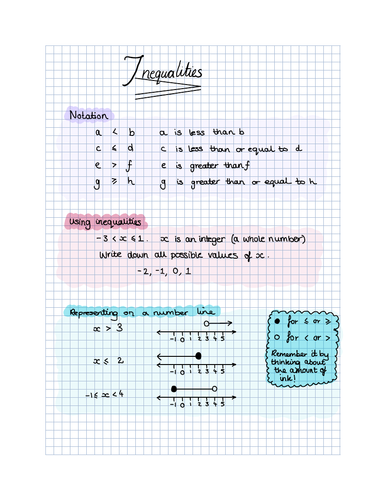 Inequalities
Notation
a < b a is less than b
c ⩽ d c is less than or equal to d
e > f e is greater than f
g ⩾ h g is greater than or equal to h
Using inequalities
-3 < x ⩽ 1. x is an integer (a whole number)
Write down all possible values of x.
-2, -1, 0, 1
Representing on a number line
x > 3
-1 0 1 2 3 4 5
x ⩽ 2
-1 0 1 2 3 4 5
-1 ⩽ x < 4
-1 0 1 2 3 4 5
● for ⩽ or ⩾
○ for < or >
Remember it by
thinking about
the amount of
ink!